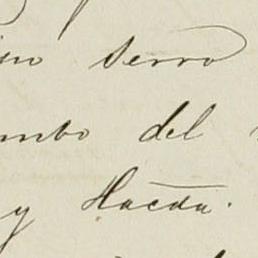 serro
mbo del
y Hacda.